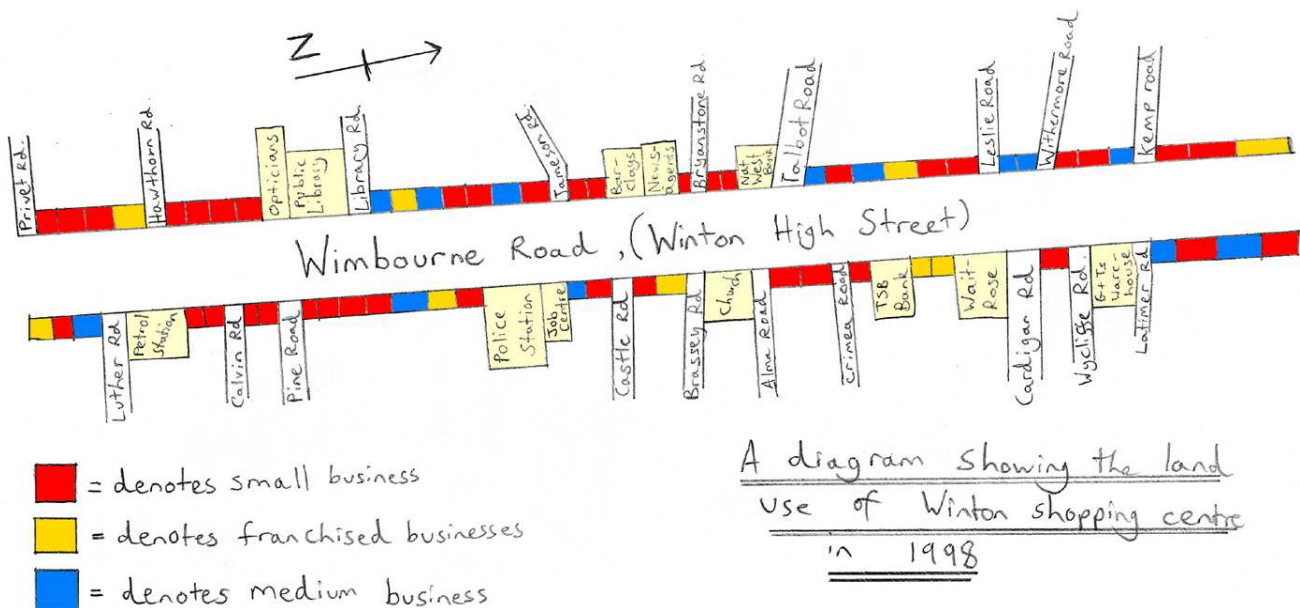 N
Privet Rd.
Hawthorn Rd.
Opticians
Public
Library
Library Rd.
Jameson Rd.
Bar-
clays
News-
agents
Bryanstone Rd
Nat
West
Bank
Talbot Road
Leslie Road
Withermore Road
Kemp road
Wimbourne Road, (Winton High Street)
Luther Rd
Petrol
Station
Calvin Rd
Pine Road
Police
Station
Job
Centre
Castle Rd
Brassey Rd
Church
Alma Road
Crimea Road
TSB
Bank
Wait-
Rose
Cardigan Rd
Wycliffe Rd.
G+Ts
Ware-
house
Latimer Rd.
= denotes small business
= denotes franchised businesses
= denotes medium business
A diagram showing the land
use of Winton shopping centre
in 1998